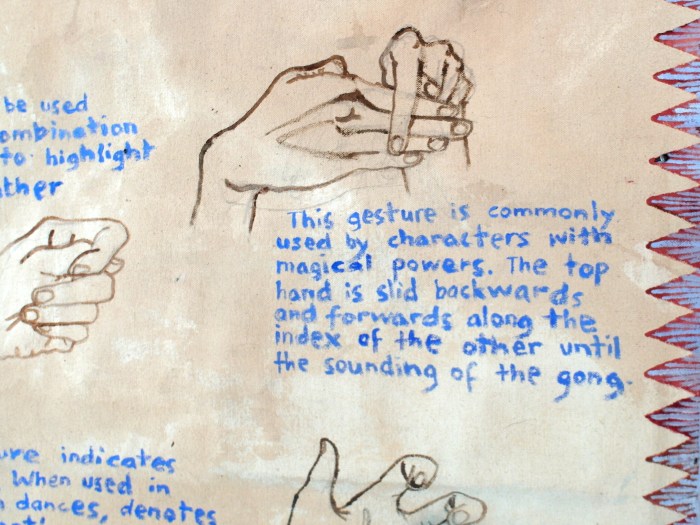 be used
ombination
to highlight
ther
This gesture is commonly
used by characters with
magical powers. The top
hand is slid backwards
and forwards along the
index of the other until
the sounding of the gong.
ure indicates
When used in
dances, denotes